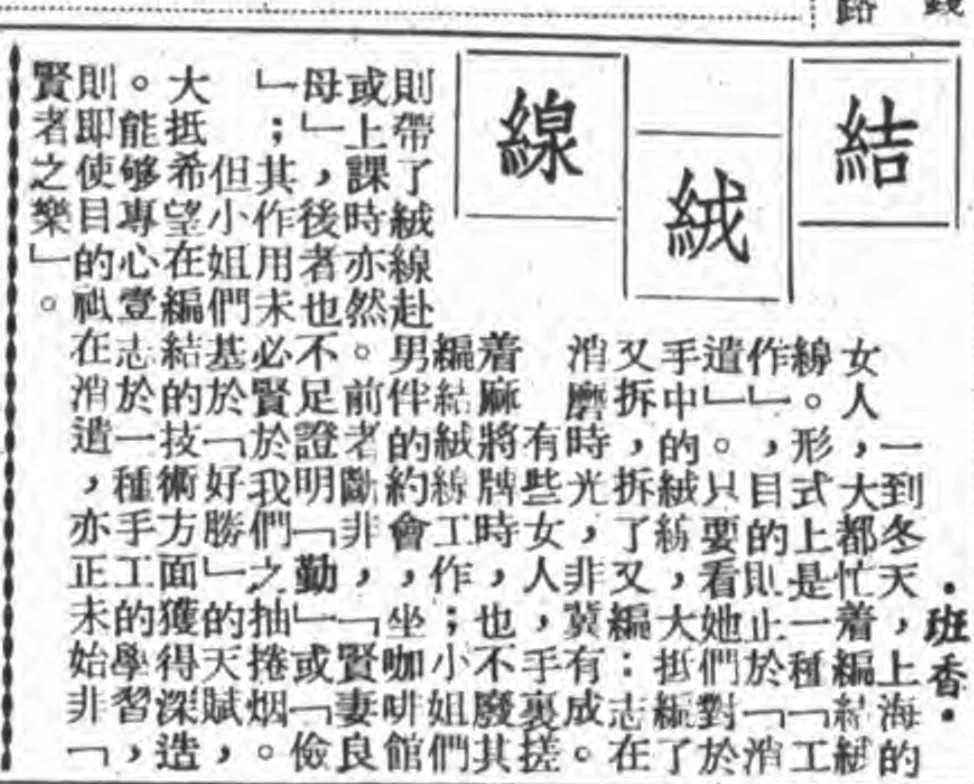 結絨線
·班香·
一到冬天，上海的
女人，大都忙着編結絨
線。形式上是一種「工
作」，目的則止於「消
遣」。只要看她們對於
手中的絨紡，大抵編了
又拆，拆了又編：志在
消磨時光，非冀有成。
有些女人，手裏搓
着麻將牌時，也不廢其
編結絨線工作；小姐們
則帶了絨線赴男伴的約會，坐咖啡館
或上課時亦然。前者斷非，「賢妻良
母」，後者也不足證明「勤」或「儉
」；其作用未必賢於我們之抽捲烟。
但小姐們基於「好勝」的天賦，
大抵希望在編結的技術方面獲得深造
。能够專心壹志於一種手工的學習，
則即使目的祇在消遣，亦正未始非「
賢者之樂」。